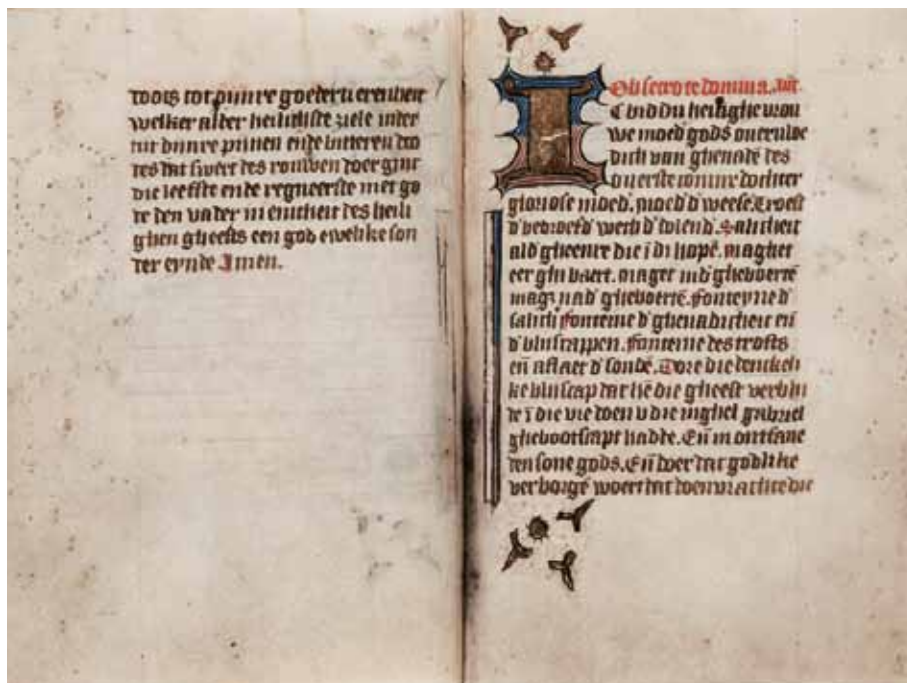 doots tot dynre goedertierenheit
welker alder heilichste ziele inder
tijt dynre pinen ende bitteren doo
des dat swert des rouwen doer ginc
die leefste ende regneerste met go
de den vader in enicheit des heili
ghen gheests een god ewelike son
der eynde Amen.
Obsecro te domina.
IC bid du heilighe vrou
we moed' gods ouervloe
dich van ghenadē des
ouerste conincs dochter
gloriose moed'. moed' d' weese. Troest
d' bedroefd' wech d' dolend'. Salicheit
ald' gheenre die ī di hopē. maghet
eer ghi baert. maget ind' gheboertē
magꝫ nad' gheboertē. fonteyne d'
salich fonteine d' ghenadicheit eñ
d' bliscappen. fonteine des trosts
eñ aflaet d' sondē. Dore die
ke bliscap dat hē die gheest verbli
de ī die vre doen v die inghel gabriel
ghebootscapt hadde. Eñ in ontfane
den sone gods. Eñ doer dat godlike
verborgē woert dat doen wrachte die